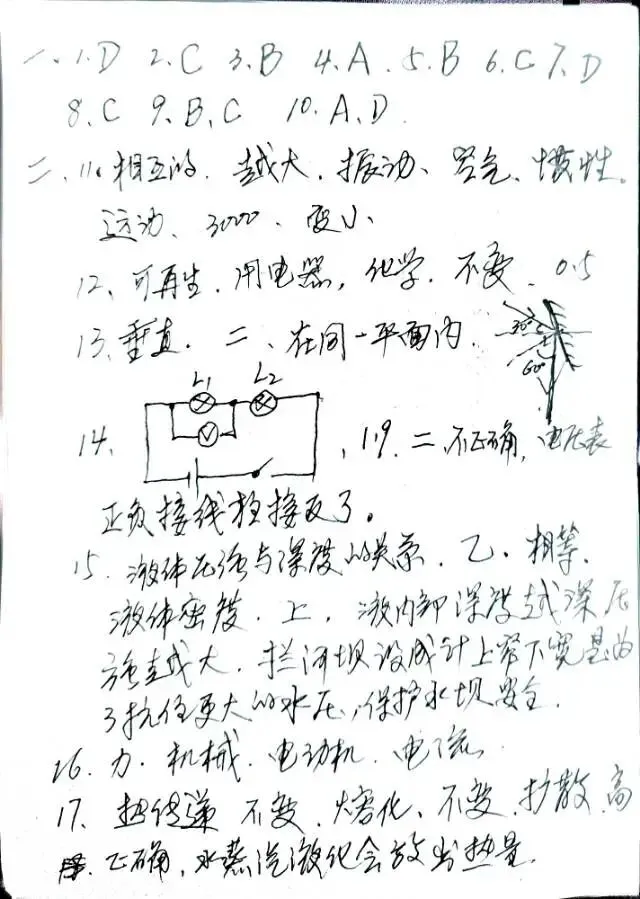 一、1.D 2.C 3.B 4.A. 5.B 6.C 7.D
8.C 9.B、C 10.A、D.
二、11.相互的. 越大. 振动、空气、惯性.
运动、3000、变小、
12、可再生. 用电器, 化学. 不变. 0.5
13.垂直. 二、在同一平面内.
30°
60°
L1 L2
V
14. 、1.9. 二, 不正确, 电压表
正负接线柱接反了。
15. 液体压强与深度的关系. 乙. 相等.
液体密度. 上. 液内部深度越深压
强越大. 拦河坝设成计上窄下宽是为
了抗住更大的水压, 保护水坝安全.
16. 力. 机械. 电动机. 电流.
17、热传递 不变. 熔化、不变. 扩散. 高
正确, 水蒸汽液化会放出热量.